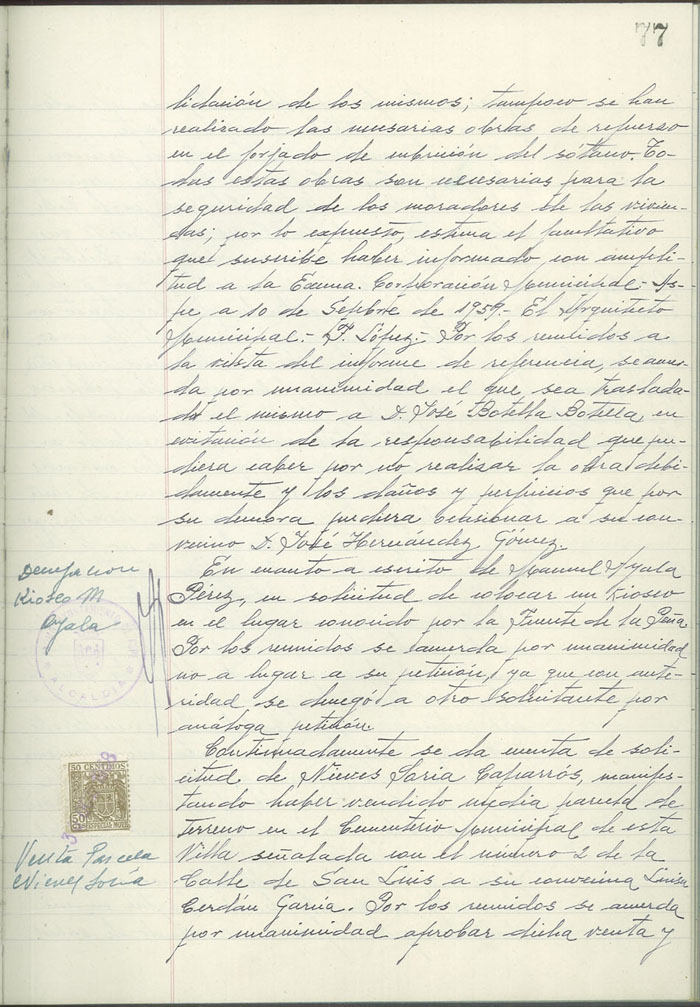 77
lidación de los mismos; tampoco se han
realizado las necesarias obras de refuerso
en el forjado de cubrición del sótano. To-
das estas obras son necesarias para la
seguridad de los moradores de las vivien-
das; por lo expuesto, estima el facultativo
que suscribe haber informado con ampli-
tud a la Excma. Corporación Municipal.- As-
pe a 10 de Sepbre de 1959.- El Arquitecto
Municipal.- F. López.- Por los reunidos a
la vista del informe de referencia, se acuer-
da por unanimidad el que sea traslada-
do el mismo a D. José Botella Botella, en
evitación de la responsabilidad que pu-
diera caber por no realizar la obra debi-
damente y los daños y perjuicios que por
su demora pudiera ocasionar a su con-
vecino D. José Hernández Gómez.
Denegacion
Kiosco M
Ayala
En cuanto a escrito de Manuel Ayala
Pérez, en solicitud de colocar un Kiosco
en el lugar conocido por la Fuente de la Peña
Por los reunidos se acuerda por unanimidad
no a lugar a su petición, ya que con ante-
ridad se denegó a otro solicitante por
análoga petición.
ALCALDIA
50 CENTIMOS
50
ESPECIAL MOVIL
Venta Parcela
Nieves Soria
Continuadamente se da cuenta de soli-
citud de Nieves Soria Caparrós, manifes-
tando haber vendido media parcela de
terreno en el Cementerio Municipal de esta
Villa señalada con el número 2 de la
Calle de San Luis a su convecina Luisa
Cerdán García. Por los reunidos se acuerda
por unanimidad aprobar dicha venta y